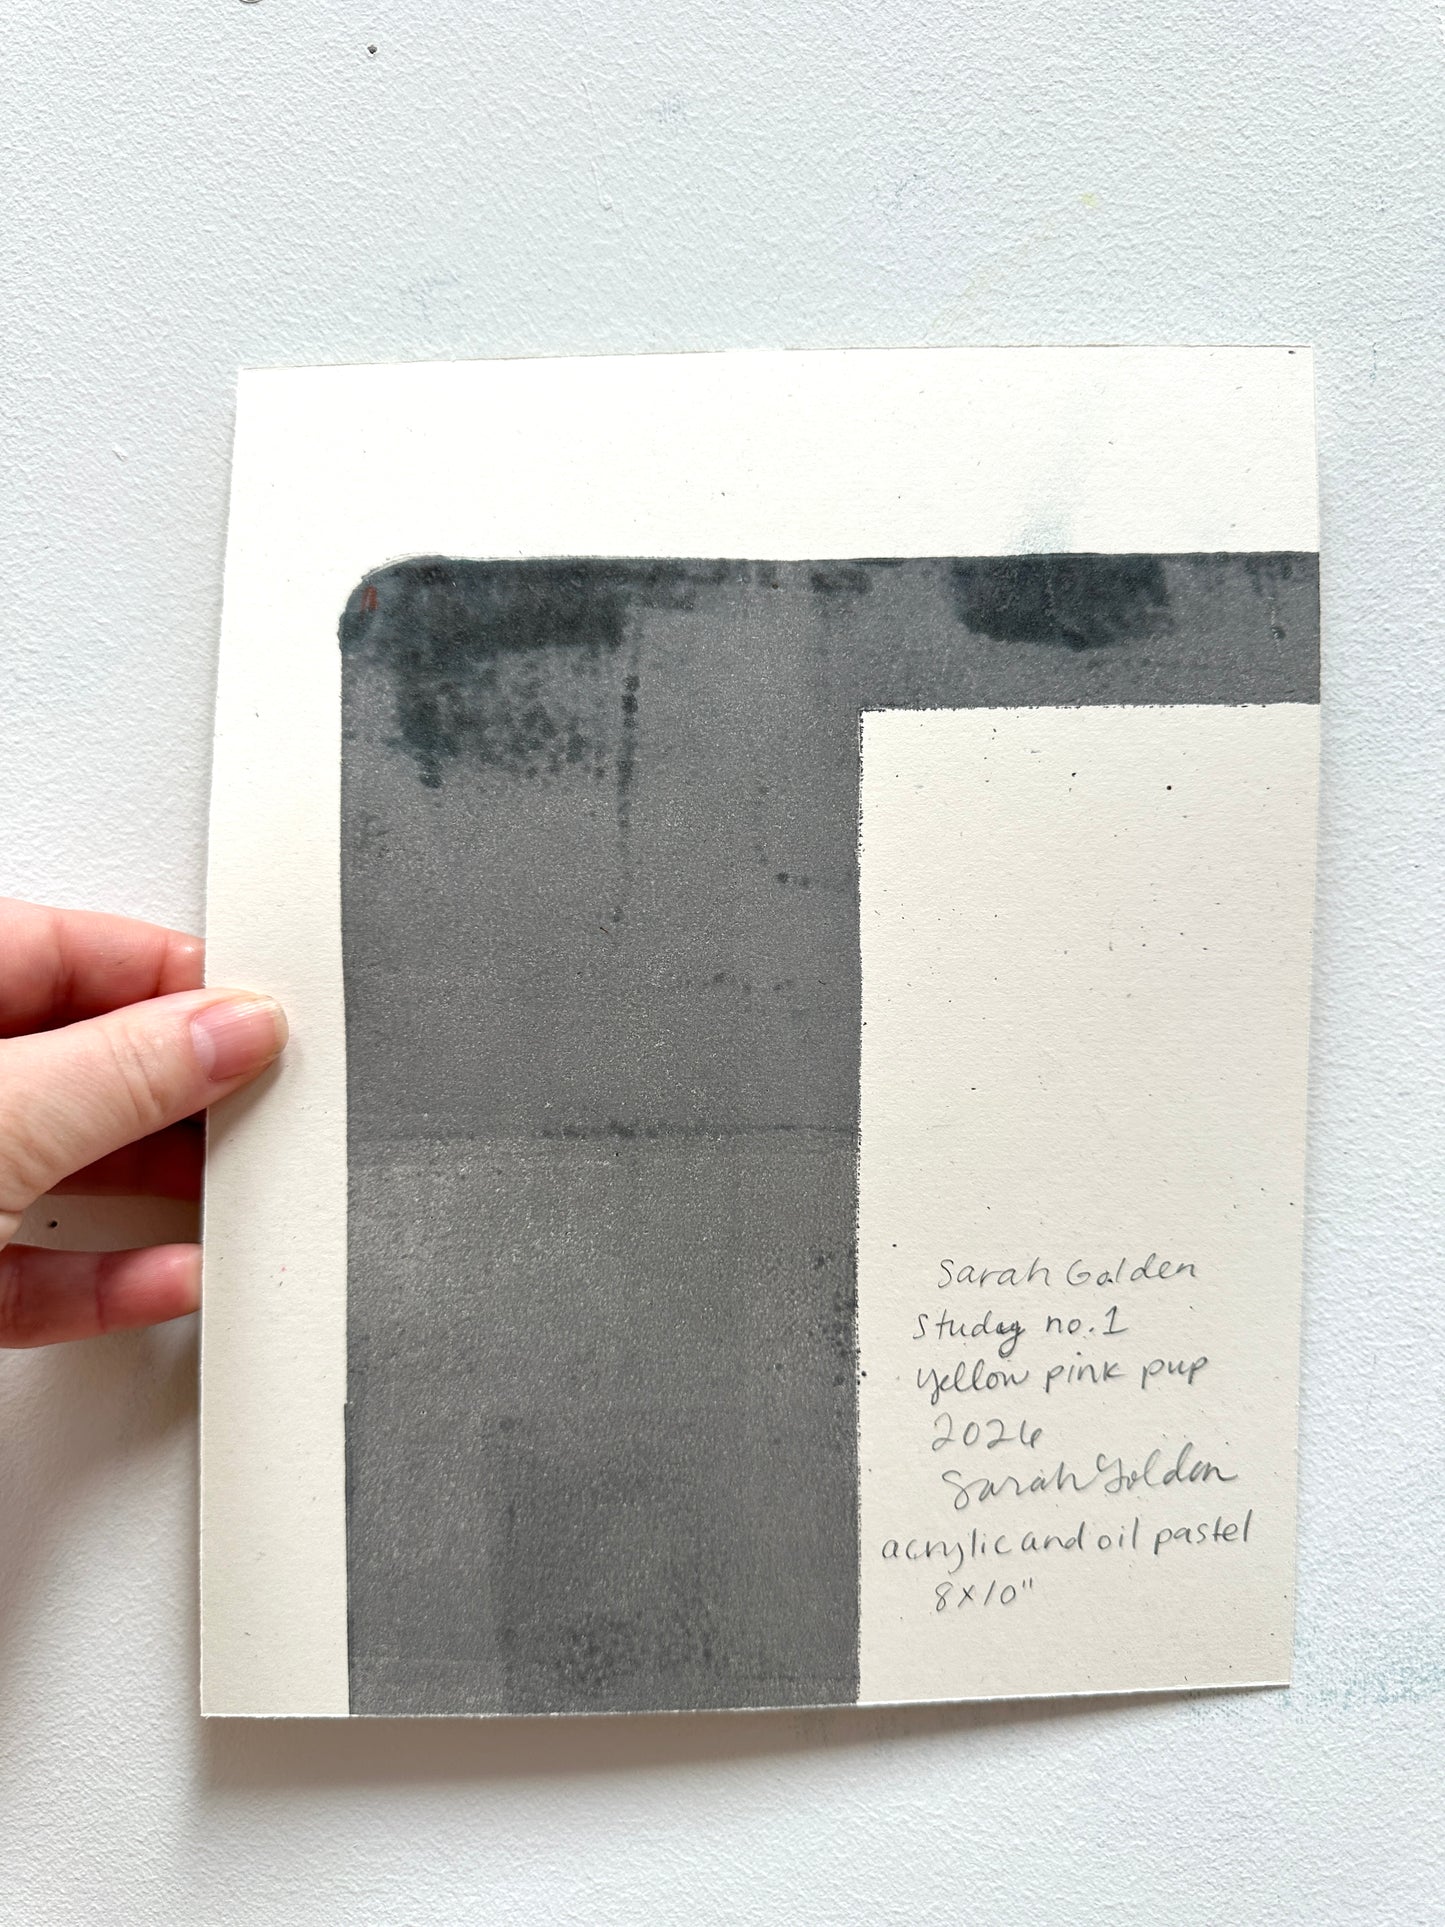 Sarah Golden
Study no.1
yellow pink pup
2026
Sarah Golden
acrylic and oil pastel
8x10"